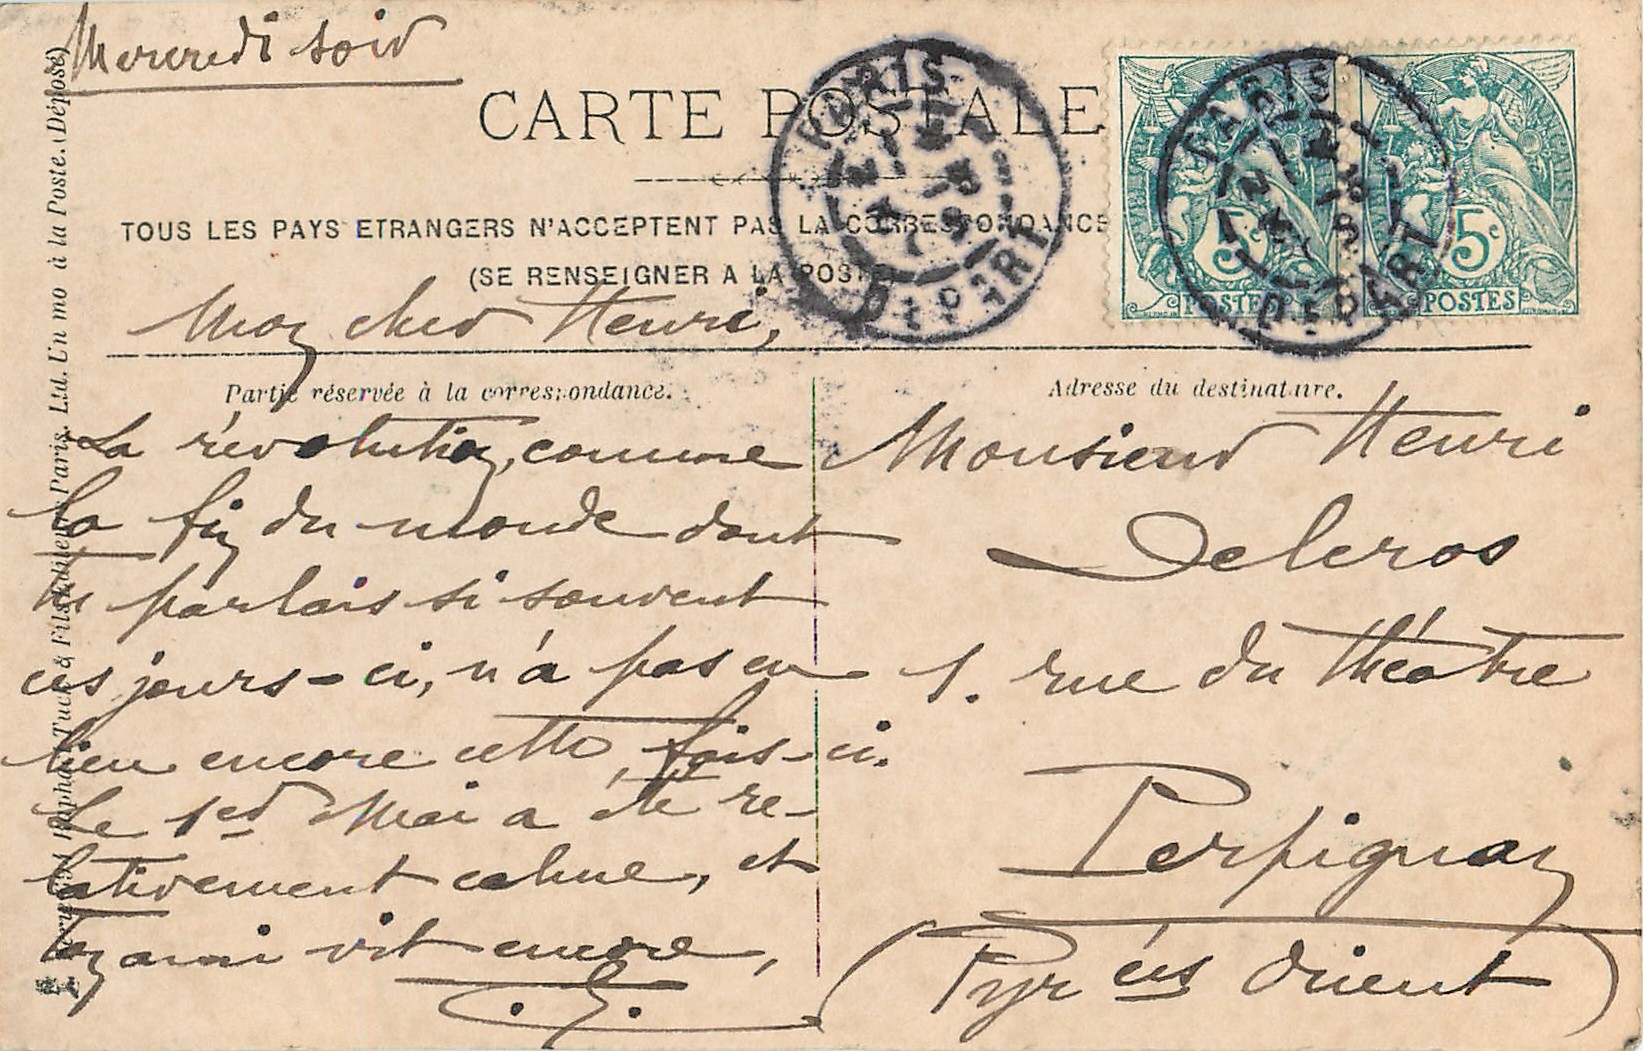 Mercredi soir
CARTE POSTALE
TOUS LES PAYS ETRANGERS N'ACCEPTENT PAS LA CORRESPONDANCE
(SE RENSEIGNER A LA POSTE)
PARIS
DEPART
PARIS
DEPART
5c
POSTES
5c
POSTES
RÉPUBLIQUE FRANÇAISE
Mon cher Henri,
Partie réservée à la correspondance.
La révolution, comme
la fin du monde dont
tu parlais si souvent
ces jours-ci, n'a pas eu
lieu encore cette fois-ci.
Le 1er Mai a été re-
lativement calme, et
ton ami vit encore,
Adresse du destinataire.
Monsieur Henri
Delcros
1. rue du Théâtre
Perpignan
(Pyrées Orient)
Raphael Tuck & Fils, Editeurs, Paris. Ltd. Un mo à la Poste. (Déposé)